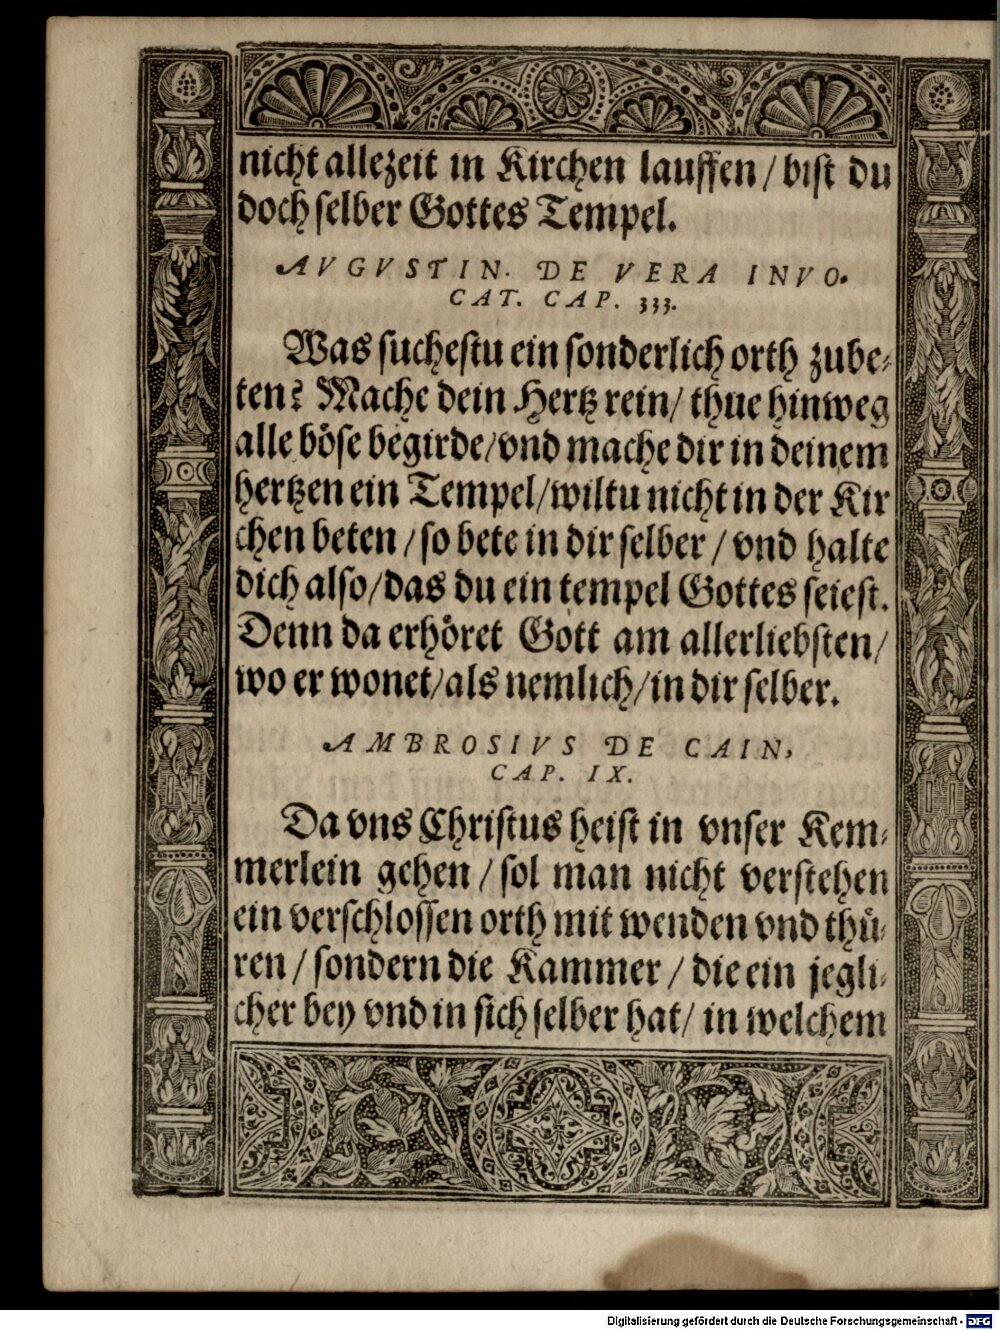 nicht allezeit in Kirchen lauffen / bist du
doch selber Gottes Tempel.
AVGVSTIN. DE VERA INVO.
CAT. CAP. 333.
Was suchestu ein sonderlich orth zube⸗
ten? Mache dein Hertz rein / thue hinweg
alle böse begirde / vnd mache dir in deinem
hertzen ein Tempel / wiltu nicht in der Kir
chen beten / so bete in dir selber / vnd halte
dich also / das du ein tempel Gottes seiest.
Denn da erhöret Gott am allerliebsten /
wo er wonet / als nemlich / in dir selber.
AMBROSIVS DE CAIN,
CAP. IX.
Da vns Christus heist in vnser Kem⸗
merlein gehen / sol man nicht verstehen
ein verschlossen orth mit wenden vnd thü⸗
ren / sondern die Kammer / die ein jegli⸗
cher bey vnd in sich selber hat / in welchem
Digitalisierung gefördert durch die Deutsche Forschungsgemeinschaft - DFG